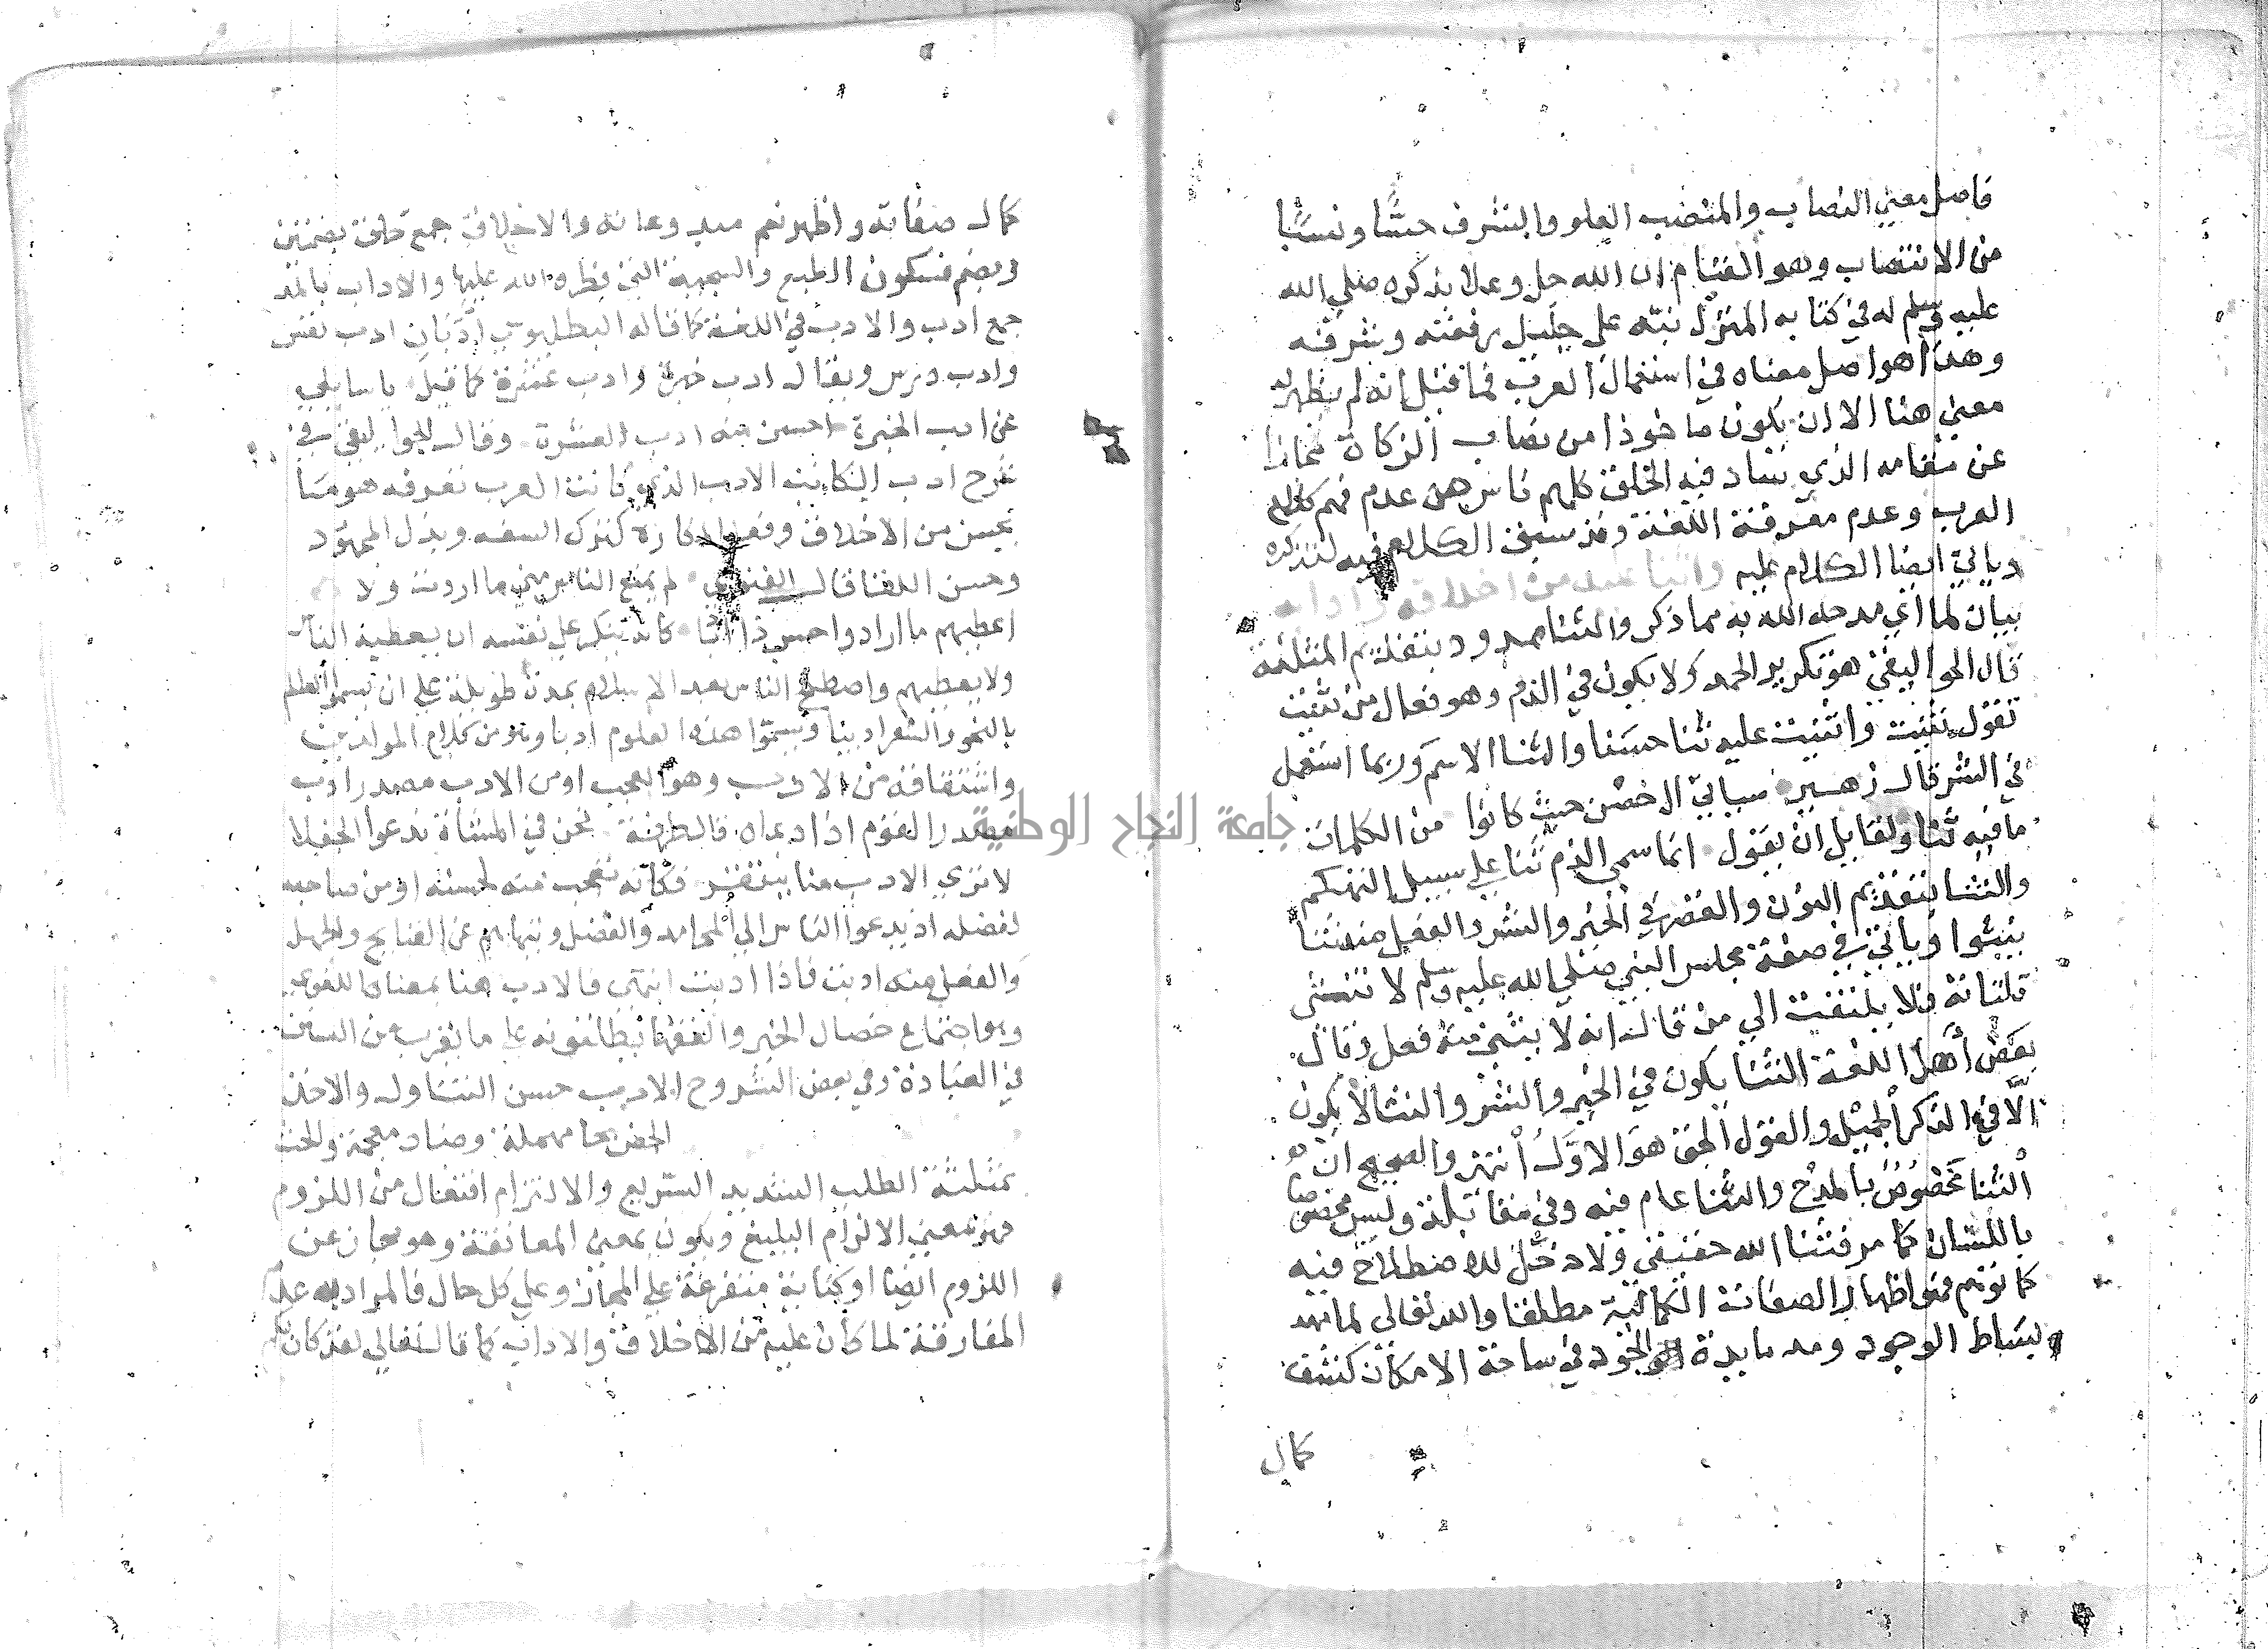 فاصل معني النصاب والمنصب العلو والشرف حسًّا ونسبًا
من الانتصاب وهو القيام ان الله جل وعلا بذكره صلي الله
عليه وسلم له في كتابه المنزل نبه علي جليل رفعته وشرفه
وهذا هو اصل معناه في استعمال العرب فما قيل انه لم يظهر له
معني هنا الا ان يكون ماخوذا من نصاب الزكاة مجازا
عن مقامه الذي ساد فيه الخلق كلهم ناس من عدم فهم كلام
العرب وعدم معرفة اللغة وقد سبق الكلام فيه لنذكره
وياتي ايضا الكلام عليه واثنا عليه من اخلاقه وادابه
بيان لما اي مدحه الله به مما ذكر والثنا ممدود بتقديم المثلثة
قال الجواليقي هو تكرير الحمد ولا يكون في الذم وهو فعال من ثنيت
تقول ثنيت واثنيت عليه ثنا حسنا والثنا الاسم وربما استعمل
في الشر قال زهير سياتي ال حصن حيث كانوا من الكلمات
ما فيه ثنا ولقايل ان يقول انما سمي الذم ثنا علي سبيل التهكم
والنثا بتقديم النون والقصر في الخير والشر والفعل منه نثا
ينثوا وياتي في صفة مجلس النبي صلي الله عليه وسلم لا تنثي
فلتاته فلا يلتفت الي من قال انه لا يبني منه فعل وقال
بعض اهل اللغة النثا يكون في الخير والشر والثنا لا يكون
الا في الذكر الجميل والقول الحق هو الاول انتهي والصحيح ان
الثنا مخصوص بالمدح والنثا عام فيه وفي مقابلة وليس مختصا
باللسان كما مر فثنا الله حقيقي ولا دخل للاصطلاح فيه
كما توهم فهو اظهار الصفات الكمالية مطلقا والله تعالي لما مهد
بساط الوجود ومد مايدة الجود في ساحة الامكان كشف
كمال
كمال صفاته واظهر نعم مبدوعاته والاخلاق جمع خلق بضمتين
وبضم فسكون الطبع والسجية التي فطره الله عليها والاداب بالمد
جمع ادب والادب في اللغة كما قاله البطليوسي ادبان ادب نفس
وادب درس ويقال ادب خبرة وادب عشرة كما قيل يا سايلي
عن ادب الخبرة احسن منه ادب العشرة وقال الجواليقي في
شرح ادب الكاتب الادب الذي كانت العرب تعرفه هو ما
يحسن من الاخلاق وفعل المكاره كترك السفه وبذل المجهود
وحسن اللقا قال الغنوي لم يمنع الناس مني ما اردت ولا
اعطيهم ما ارادوا حسن ذا ادبا كانه ينكر علي نفسه ان يعطيه الناس
ولا يعطيهم واصطلح الناس بعد الاسلام بمدة طويلة علي ان يسموا العالم
بالنحو والشعر اديبا ويسموا هذه العلوم ادبا وهو من كلام المولدين
واشتقاقه من الادب وهو العجب او من الادب مصدر ادب
مصدر القوم اذا دعاه قال طرفة نحن في المشتاة ندعوا الجفلا
لا تري الادب منا ينتقر فكانه تعجب منه لحسنه او من صاحبه
لفضله اذ يدعوا الناس الي المحامد والفضل وينهاهم عن القبايح والجهل
والفعل منه ادبت فاذا ادبت انتهي فالادب هنا بمعناه اللغوي
وهو اجتماع خصال الخير والفقها يطلقونه علي ما يقرب من السنن
في العبادة وفي بعض الشروح الادب حسن التناول والاخذ
الحض بحا مهملة وضاد معجمة والحث
بمثلثة الطلب الشديد السريع والالتزام افتعال من اللزوم
فهو بمعني الالزام البليغ ويكون بمعني المعانقة وهو مجاز عن
اللزوم ايضا او كناية متفرعة علي المجاز وعلي كل حال فالمراد به عدم
المفارقة لما كان عليه من الاخلاق والاداب كما قال تعالي لقد كان لكم
جامعة النجاح الوطنية